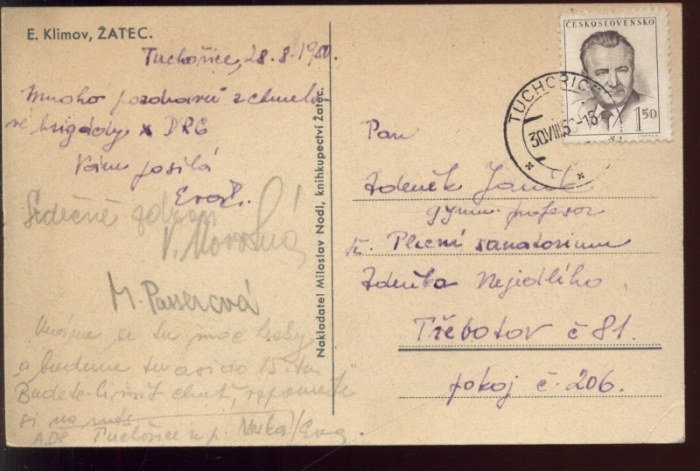 E. Klimov, ŽATEC.
Tuchořice, 28.8.1950.
Mnoho pozdravů z chmelo
vé brigády z DRG
Vám posílá
Eva P.
Srdečně zdraví
V. Morošná
M. Passerová
a budeme tu asi do 15. t.m.
Budete-li mít chuť, vzpomeňte
si na nás
Tuchořice u p.
Nakladatel Miloslav Nodl, knihkupectví Žatec.
ČESKOSLOVENSKO
1.50
TUCHOŘICE
30.VIII.50-18
Pan
Zdeněk Janků
gymn. profesor
Plicní sanatorium
Zdeňka Nejedlého
Třebotov č 81.
pokoj č. 206.